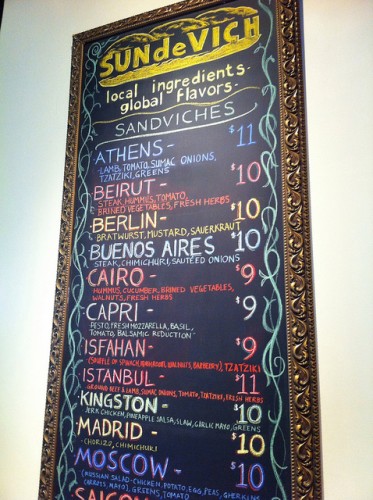 SUNdeVICH
local ingredients.
global flavors.
SANDVICHES
ATHENS - $11
LAMB, TOMATO, SUMAC ONIONS,
TZATZIKI, GREENS
BEIRUT - $10
STEAK, HUMMES, TOMATO,
BRINED VEGETABLES, FRESH HERBS
BERLIN - $10
BRATWURST, MUSTARD, SAUERKRAUT
BUENOS AIRES $10
STEAK, CHIMICHURI, SAUTÉED ONIONS
CAIRO - $9
HUMMUS, CUCUMBER, BRINED VEGETABLES,
WALNUTS, FRESH HERBS
CAPRI - $9
PESTO, FRESH MOZZARELLA, BASIL,
TOMATO, BALSAMIC REDUCTION
ISFAHAN - $9
OF SPINACH, TZATZIKI
ISTANBUL - $11
GROUND BEEF & LAMB, SUMAC ONIONS, TOMATO, TZATZIKI, FRESH HERBS
KINGSTON - $10
JERK CHICKEN, PINEAPPLE SALSA, SLAW, GARLIC MAYO, GREENS
MADRID - $10
CHORIZO, CHIMICHURI
MOSCOW - $10
(RUSSIAN SALAD - CHICKEN, POTATO, EGG, PEAS, GHERKINS
CARROTS, MAYO), GREENS, TOMATO
SAIGON